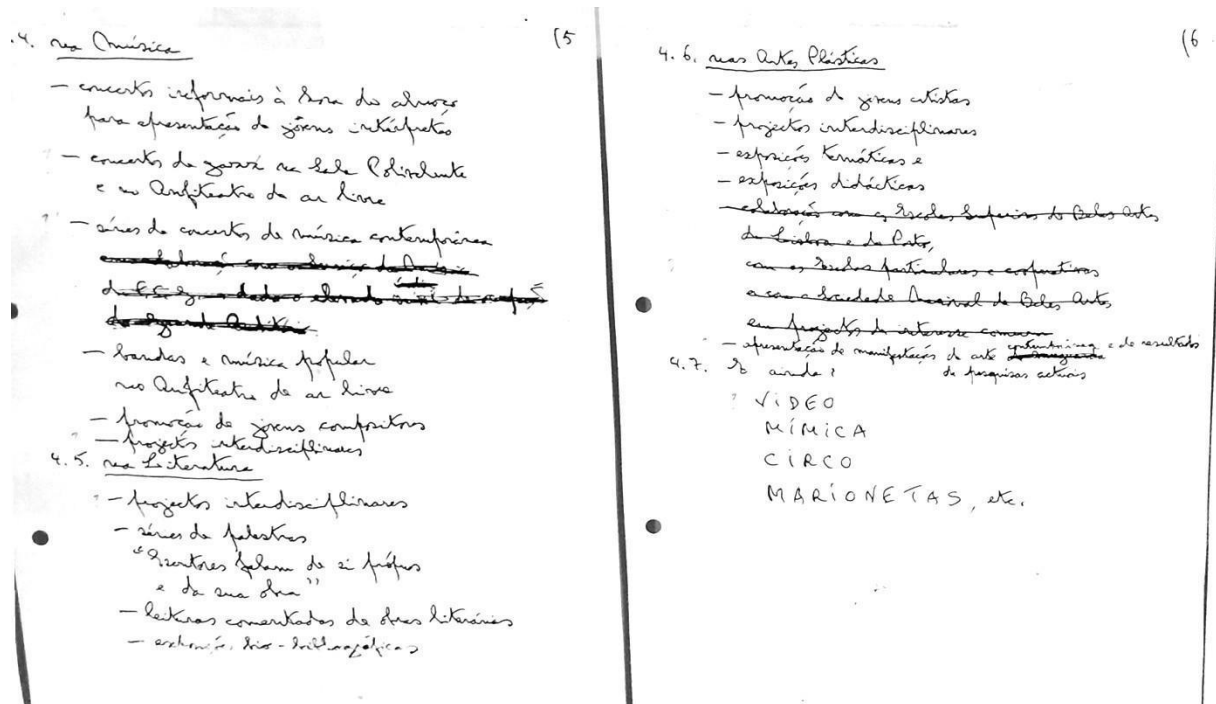 .4. na Música
(5
— concertos informais à hora do almoço
para apresentação de jovens intérpretes
— concertos de jazz na Sala Polivalente
e no Anfiteatro de ar livre
— séries de concertos de música contemporânea
em colaboração com o Serviço de Música
da F.C.G. e dado o elevado
do Grande Auditório
— bandas e música popular
no Anfiteatro de ar livre
— promoção de jovens compositores
— projectos interdisciplinares
4.5. na Literatura
— projectos interdisciplinares
— séries de palestras
"Escritores falam de si próprios
e da sua obra"
— leituras comentadas de obras literárias
— bio-bibliográficas
(6
4.6. nas Artes Plásticas
— promoção de jovens artistas
— projectos interdisciplinares
— exposições temáticas e
— exposições didácticas
— colaboração com as Escolas Superiores de Belas Artes
de Lisboa e do Porto,
com as Escolas particulares e cooperativas
e com a Sociedade Nacional de Belas Artes
em projectos de interesse comum
— apresentação de manifestações de arte de vanguarda contemporânea e de resultados
de pesquisas actuais
4.7. E ainda:
VÍDEO
MÍMICA
CIRCO
MARIONETAS, etc.